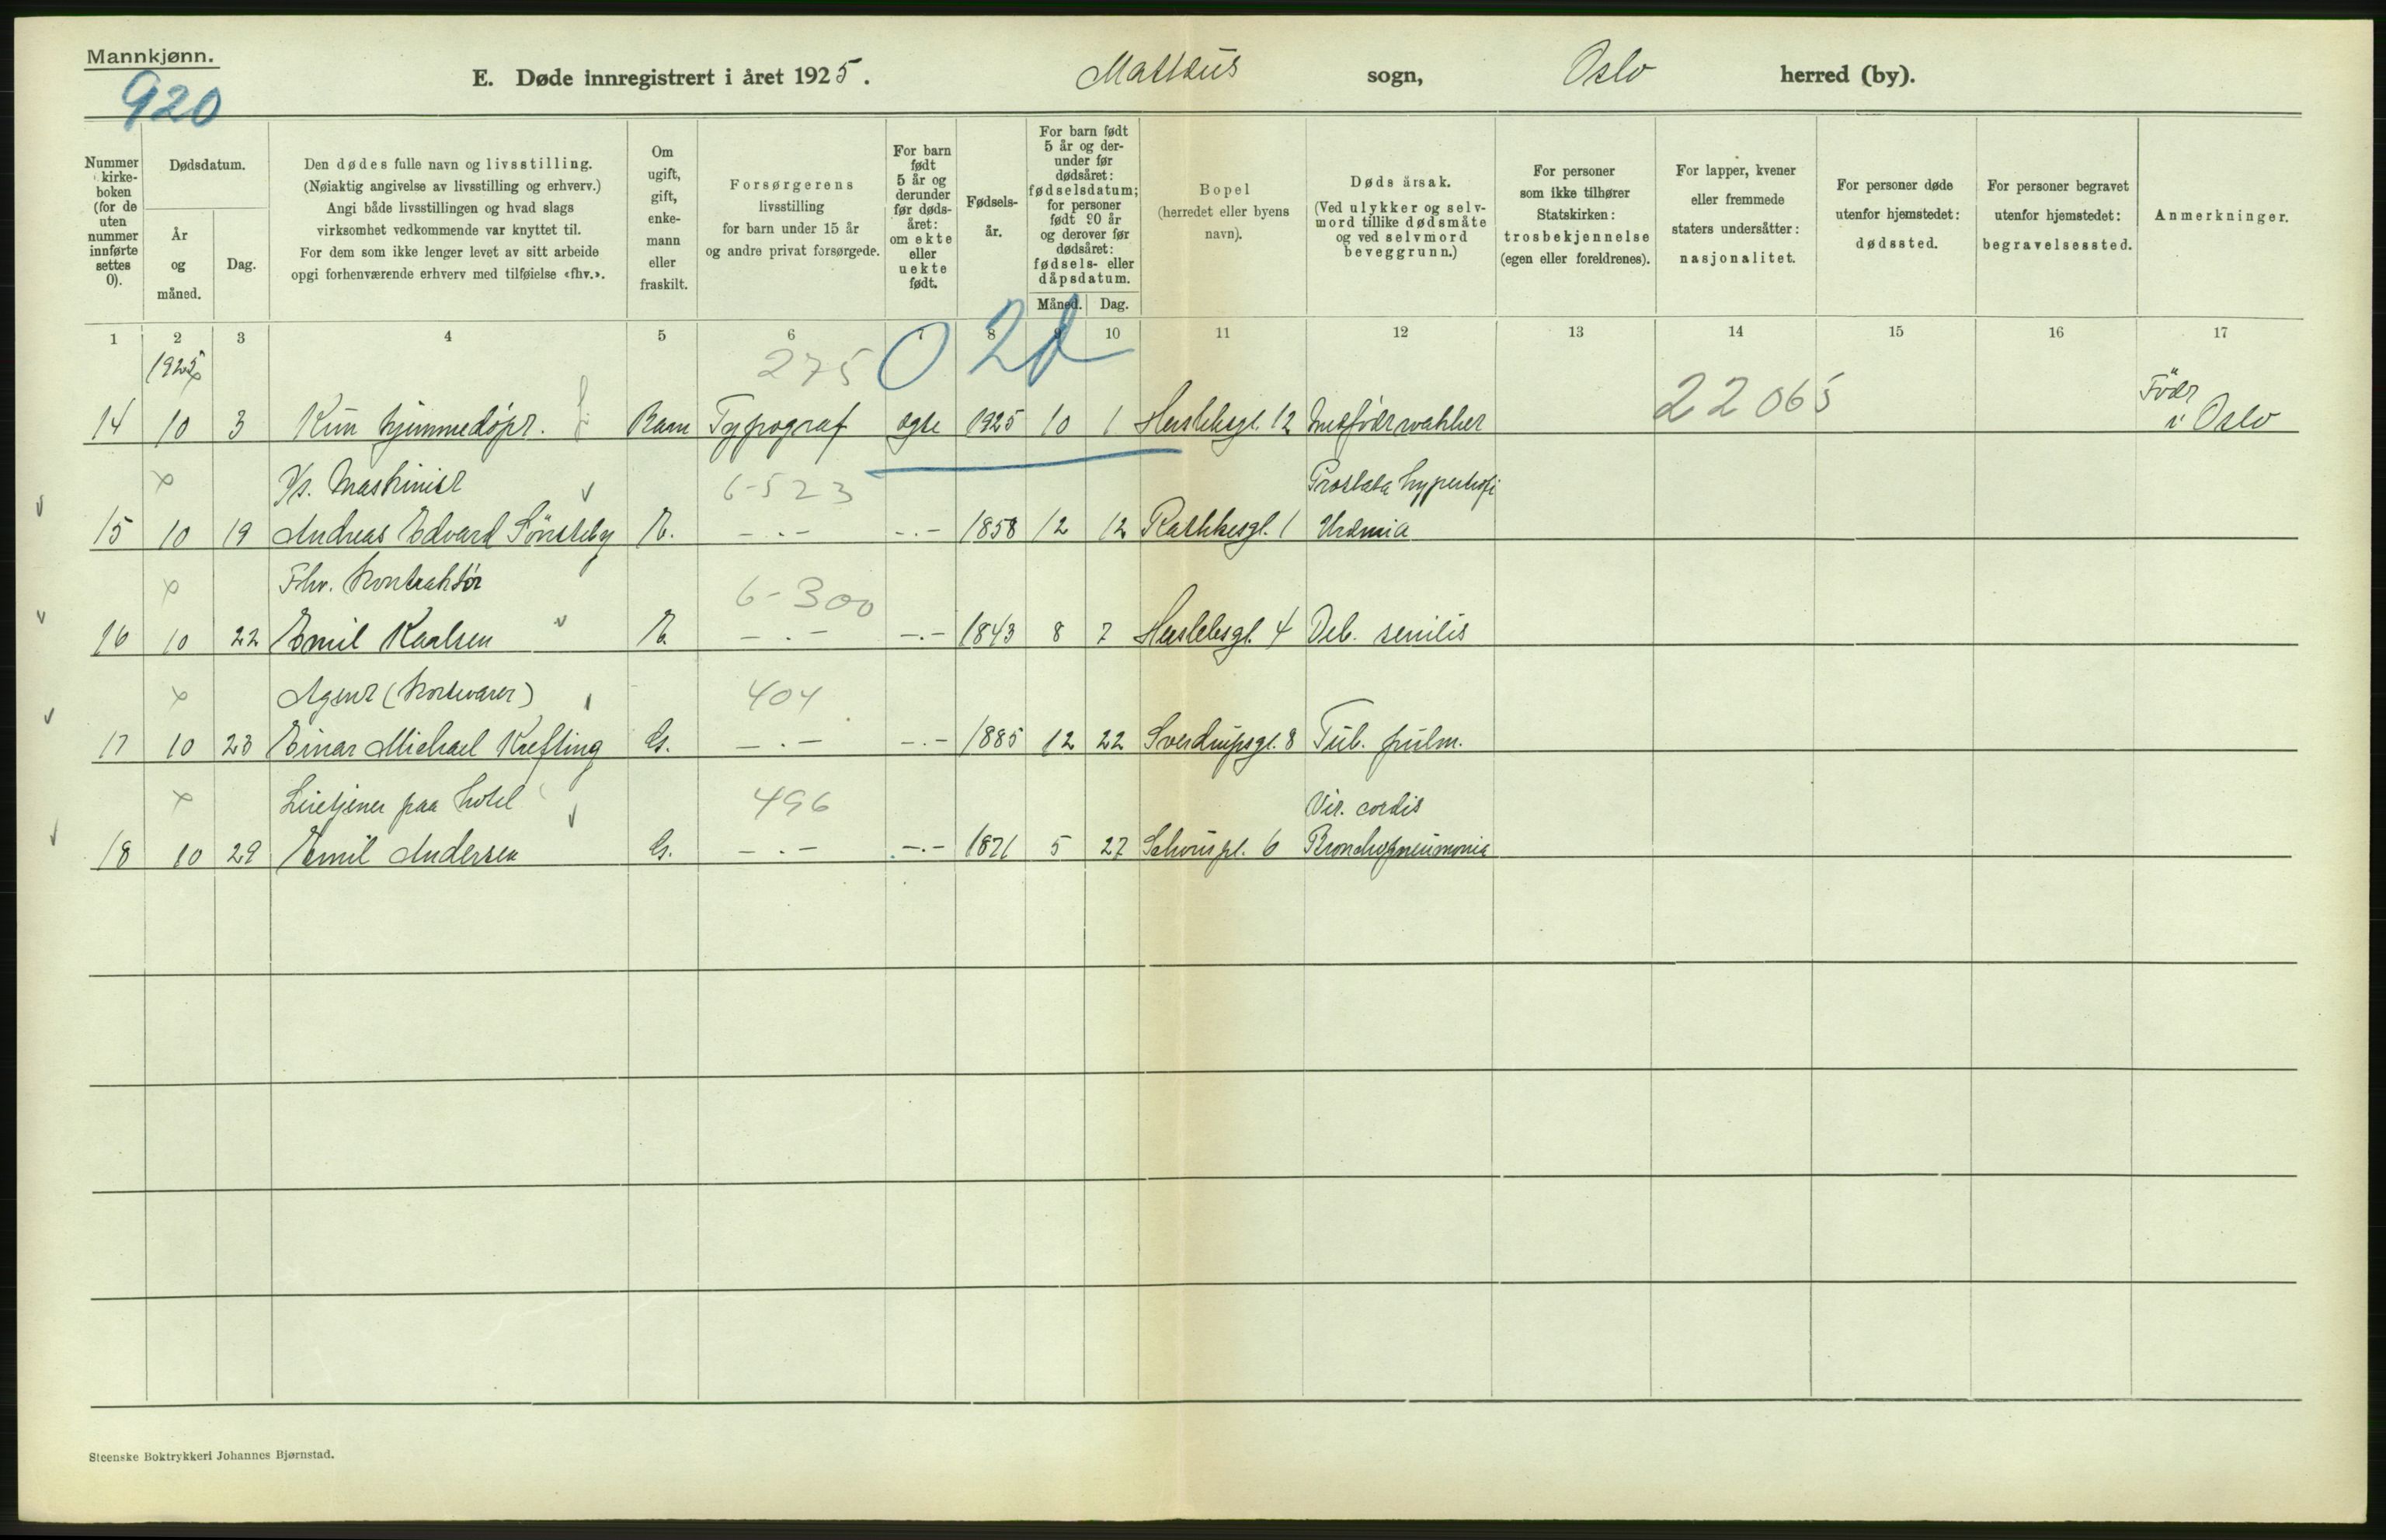 Mannkjønn.
920
E. Døde innregistrert i året 1925. Matteus sogn, Oslo herred (by).
Nummer i kirke-boken (for de uten nummer innførte settes 0).
Dødsdatum.
År og måned.
Dag.
Den dødes fulle navn og livsstilling.
(Nøiaktig angivelse av livsstilling og erhverv.)
Angi både livsstillingen og hvad slags
virksomhet vedkommende var knyttet til.
For dem som ikke lenger levet av sitt arbeide
opgi forhenværende erhverv med tilføielse «fhv.».
Om ugift, gift, enke-mann eller fraskilt.
Forsørgerens
livsstilling
for barn under 15 år
og andre privat forsørgede.
For barn født 5 år og derunder før døds-året: om ekte eller uekte født.
Fødsels-år.
For barn født 5 år og der-under før dødsåret: fødselsdatum; for personer født 90 år og derover før dødsåret: fødsels- eller dåpsdatum.
Måned. Dag.
Bopel
(herredet eller byens
navn).
Dødsårsak.
(Ved ulykker og selv-
mord tillike dødsmåte
og ved selvmord
beveggrunn.)
For personer
som ikke tilhører
Statskirken:
trosbekjennelse
(egen eller foreldrenes).
For lapper, kvener
eller fremmede
staters undersåtter:
nasjonalitet.
For personer døde
utenfor hjemstedet:
dødssted.
For personer begravet
utenfor hjemstedet:
begravelsessted.
Anmerkninger.
1 2 3 4 5 6 7 8 9 10 11 12 13 14 15 16 17
1925 275 0 2d
x 22065 Född
14 10 3 Kun hjemmedøpt. Barn Typograf ægte 1925 10 1 Herslebsgt. 12 Medfödt svakhet i Oslo
x Maskinist 6-523 Prostata hypertrofi
15 10 19 Andreas Edvard Sönsteby E. -.- -.- 1858 12 12 Rathkesgt. 1 Urämia
x Fhv. Kontraktör 6-300
16 10 22 Emil Karlsen E. -.- -.- 1843 8 7 Herslebsgt. 4 Deb. senilis
x Agent (Kortevarer) 404
17 10 23 Einar Michael Krefting G. -.- -.- 1885 12 22 Sverdrupsgt. 8 Tub. pulm.
x paa hotel 496 Vit. cordis
18 10 29 Emil Andersen G. -.- -.- 1871 5 27 Schouspl. 6 Bronchopneumonia
Steenske Boktrykkeri Johannes Bjørnstad.